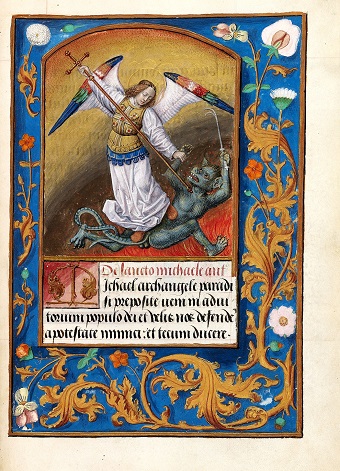 De sancto michaele ant
Michael archangele paradi
si preposite veni in adiu
torium populo dei et velis nos defende
a potestate inimici: et tecum ducere.